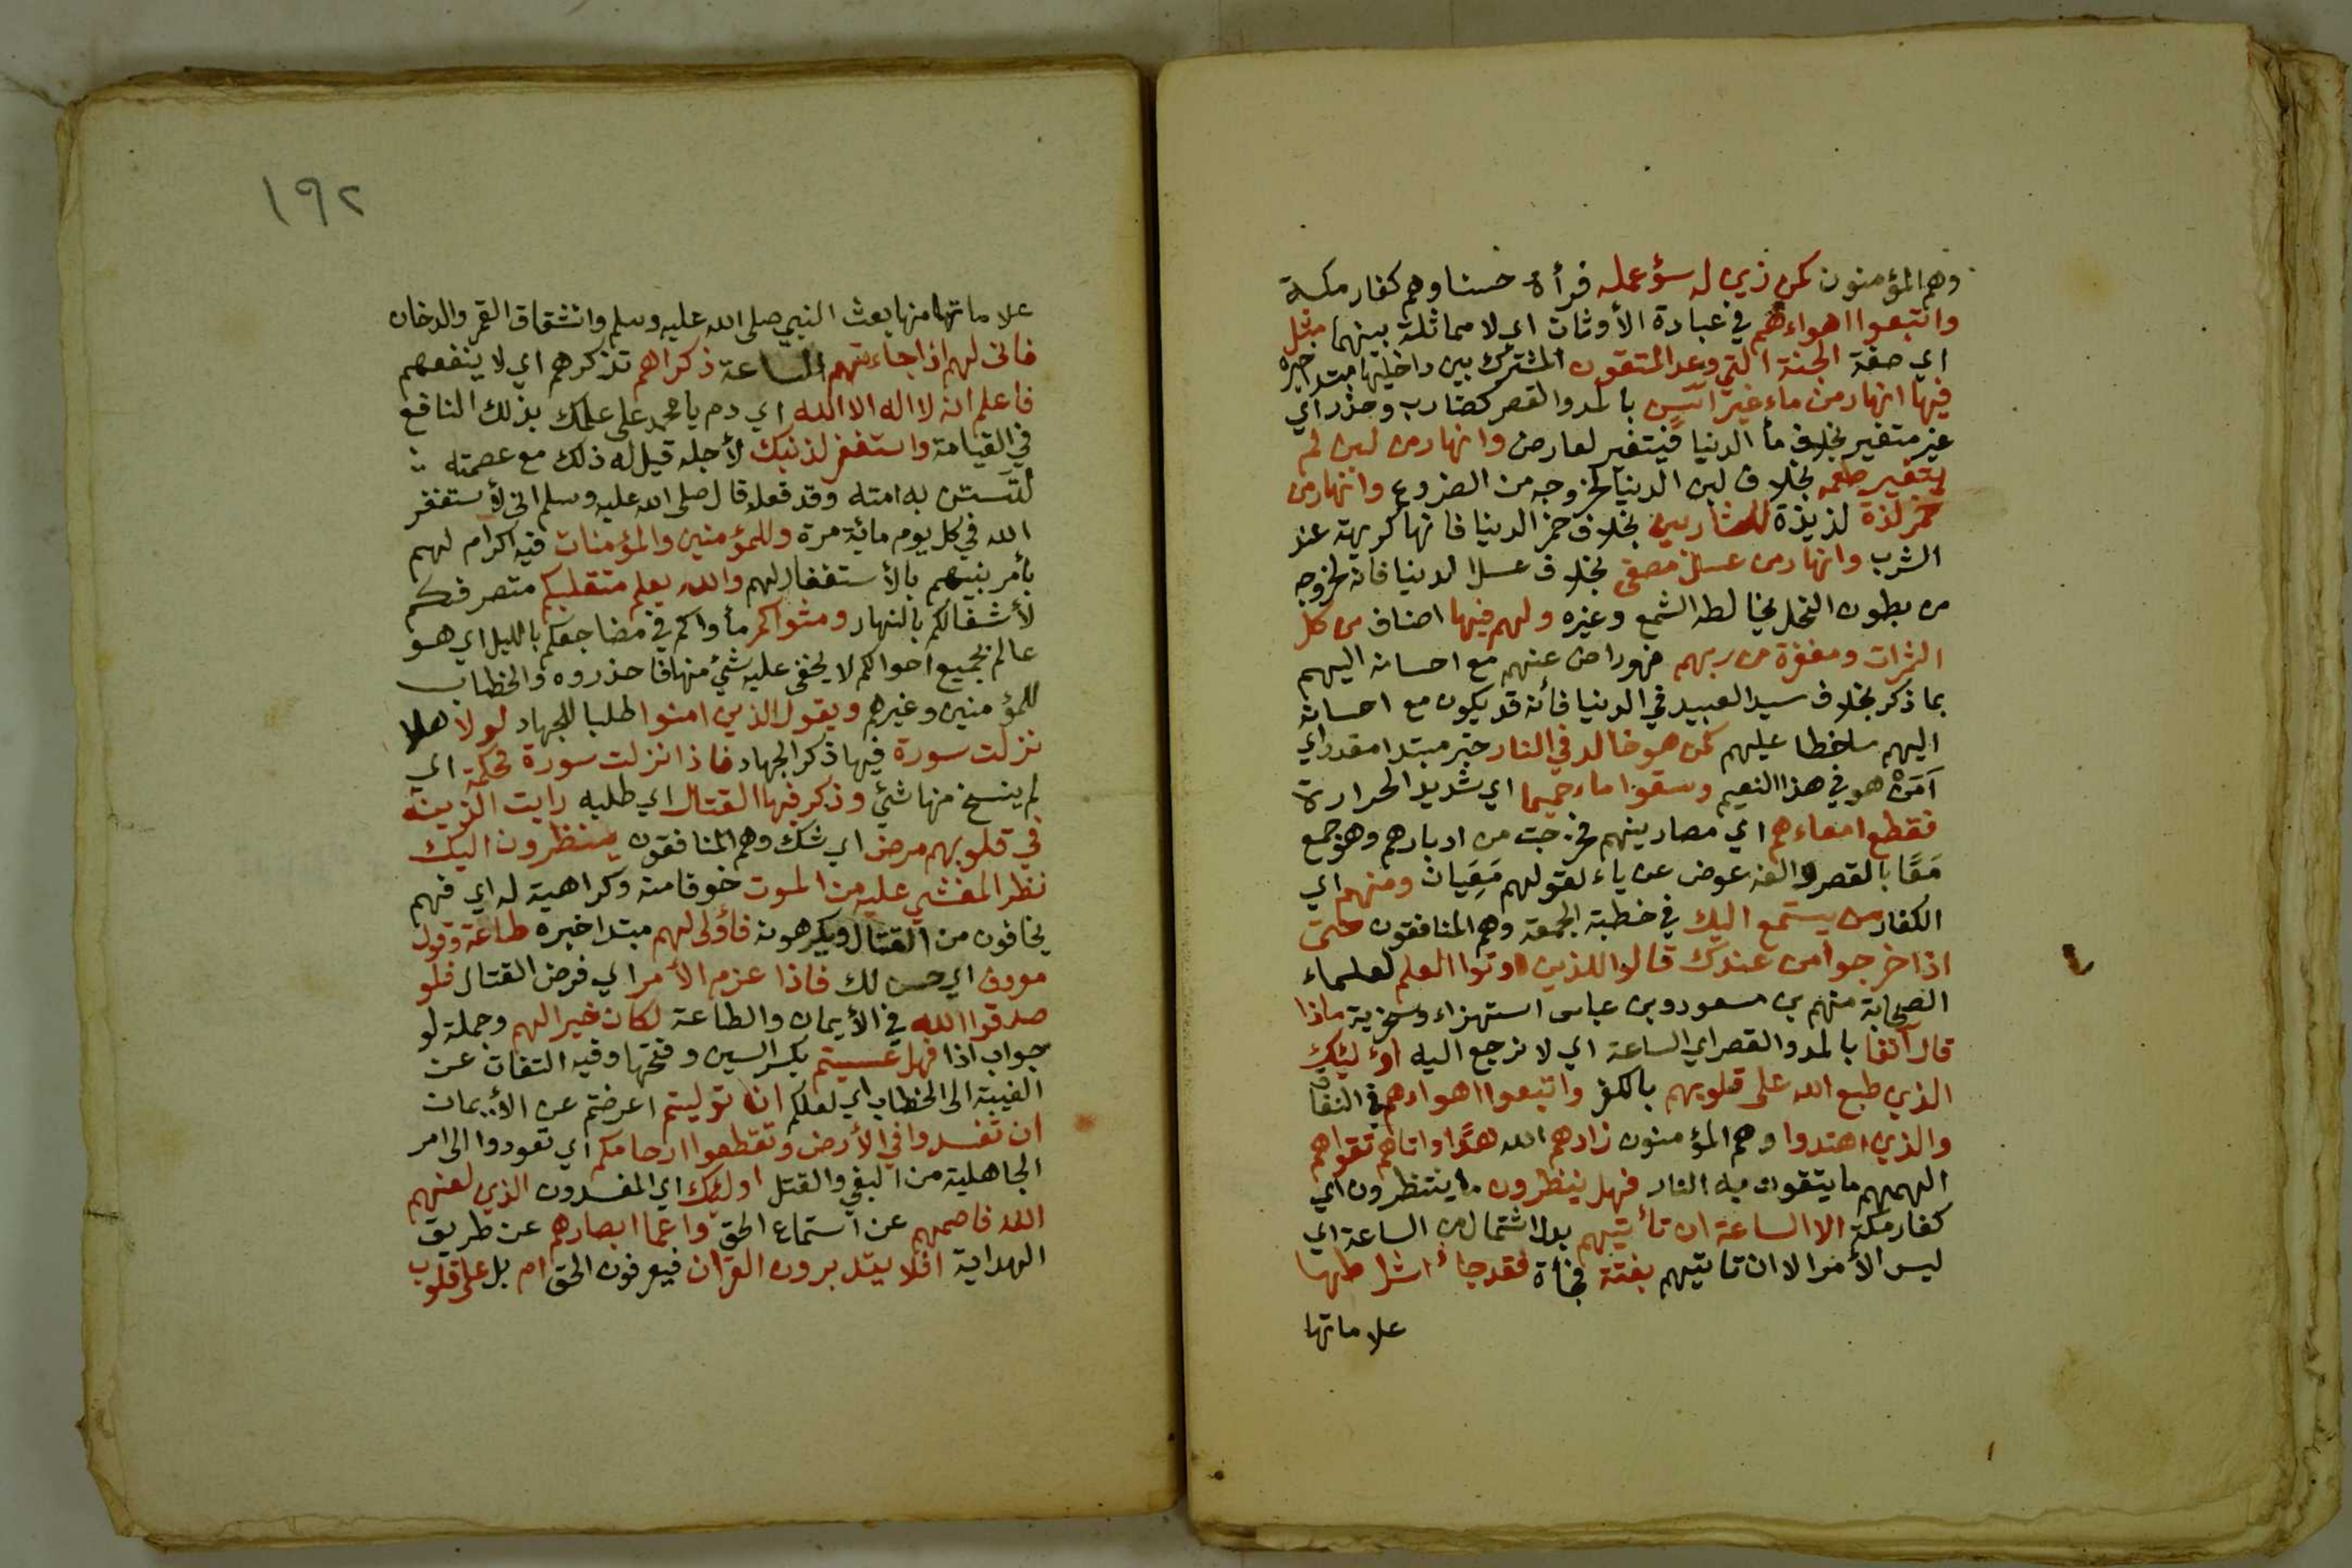 وهم المؤمنون كمن زين له سؤ عمله فرأه حسنا وهم كفار مكة
واتبعوا اهواءهم في عبادة الأوثان اي لا مماثلة بينهما مثل
اي صفة الجنة التي وعد المتقون المشترك بين داخليها مبتدا خبره
فيها انهار من ماء غير اٰسن بالمد والقصر كضارب وحذر اي
غير متغير بخلاف ما الدنيا فيتغير لعارض وانهار من لبن لم
يتغير طعمه بخلاف لبن الدنيا لخروجه من الضروع وانهار من
خمر لذة لذيذة للشاربين بخلاف خمر الدنيا فانها كريهة عند
الشرب وانهار من عسل مصفى بخلاف عسل الدنيا فانه لخروجه
من بطون النحل يخالطه الشمع وغيره ولهم فيها اصناف من كل
الثمرات ومغفرة من ربهم فهو راض عنهم مع احسانه اليهم
بما ذكر بخلاف سيد العبيد في الدنيا فأنه قد يكون مع احسانه
اليهم ساخطا عليهم كمن هو خالد في النار خبر مبتدا مقدر اي
اَمَنْ هو في هذا النعيم وسقوا ماء حميما اي شديد الحرارة
فقطع امعاءهم اي مصارينهم فخرجت من ادبارهم وهو جمع
مَعًا بالقصر والفه عوض عن ياء لقولهم مَعِيَان ومنهم اي
الكفار من يستمع اليك في خطبة الجمعة وهم المنافقون حتى
اذا خرجوا من عندك قالوا للذين اوتوا العلم لعلماء
الصحابة منهم بن مسعود وبن عباس استهزاء وسخرية ماذا
قال آنفا بالمد والقصر اي الساعة اي لا نرجع اليه اوليئك
الذي طبع الله على قلوبهم بالكفر واتبعوا اهواءهم في النفاق
والذين اهتدوا وهم المؤمنون زادهم الله هدًا واتاهم تقواهم
الهمهم ما يتقون به النار فهل ينظرون ما ينتظرون اي
كفار مكة الا الساعة ان تأتيهم بدل اشتمال من الساعة اي
ليس الأمر الا ان تاتيهم بغتة فجأة فقد جاء اشراطها
علاماتها
١٩٢
علاماتها منها بعث النبي صلى الله عليه وسلم وانشقاق القمر والدخان
فانى لهم اذا جاءتهم الساعة ذكراهم تذكرهم اي لا ينفعهم
فاعلم انه لا اله الا الله اي دم يا محمد على علمك بذلك النافع
في القيامة واستغفر لذنبك لأجله قيل له ذلك مع عصمته
لتستن به امته وقد فعله قال صلى الله عليه وسلم اني لأستغفر
الله في كل يوم مائة مرة وللمؤمنين والمؤمنات فيه اكرام لهم
بأمر نبيهم بالأستغفار لهم والله يعلم متقلبكم متصرفكم
لأشغالكم بالنهار ومثواكم مأواكم في مضاجعكم بالليل اي هو
عالم بجميع احوالكم لا يخفى عليه شئ منها فاحذروه والخطاب
للمؤمنين وغيرهم ويقول الذين امنوا طلبا للجهاد لولا هلا
نزلت سورة فيها ذكر الجهاد فاذا انزلت سورة محكمة اي
لم ينسخ منها شئ وذكر فيها القتال اي طلبه رايت الذين
في قلوبهم مرض اي شك وهم المنافقون ينظرون اليك
نظر المغشي عليه من الموت خوفا منه وكراهية له اي فهم
يخافون من القتال ويكرهونه فأولى لهم مبتدا خبره طاعة وقول
معروف اي حسن لك فاذا عزم الأمر اي فرض القتال فلو
صدقوا الله في الأيمان والطاعة لكان خيرا لهم وجملة لو
جواب اذا فهل عسيتم بكسر السين وفتحها وفيه التفات عن
الغيبة الى الخطاب اي لعلكم ان توليتم اعرضتم عن الأيمان
ان تفسدوا في الأرض وتقطعوا ارحامكم اي تعودوا الى امر
الجاهلية من البغي والقتل اوليئك اي المفسدون الذي لعنهم
الله فاصمهم عن استماع الحق واعما ابصارهم عن طريق
الهداية افلا يتدبرون القرآن فيعرفون الحق ام بل على قلوب